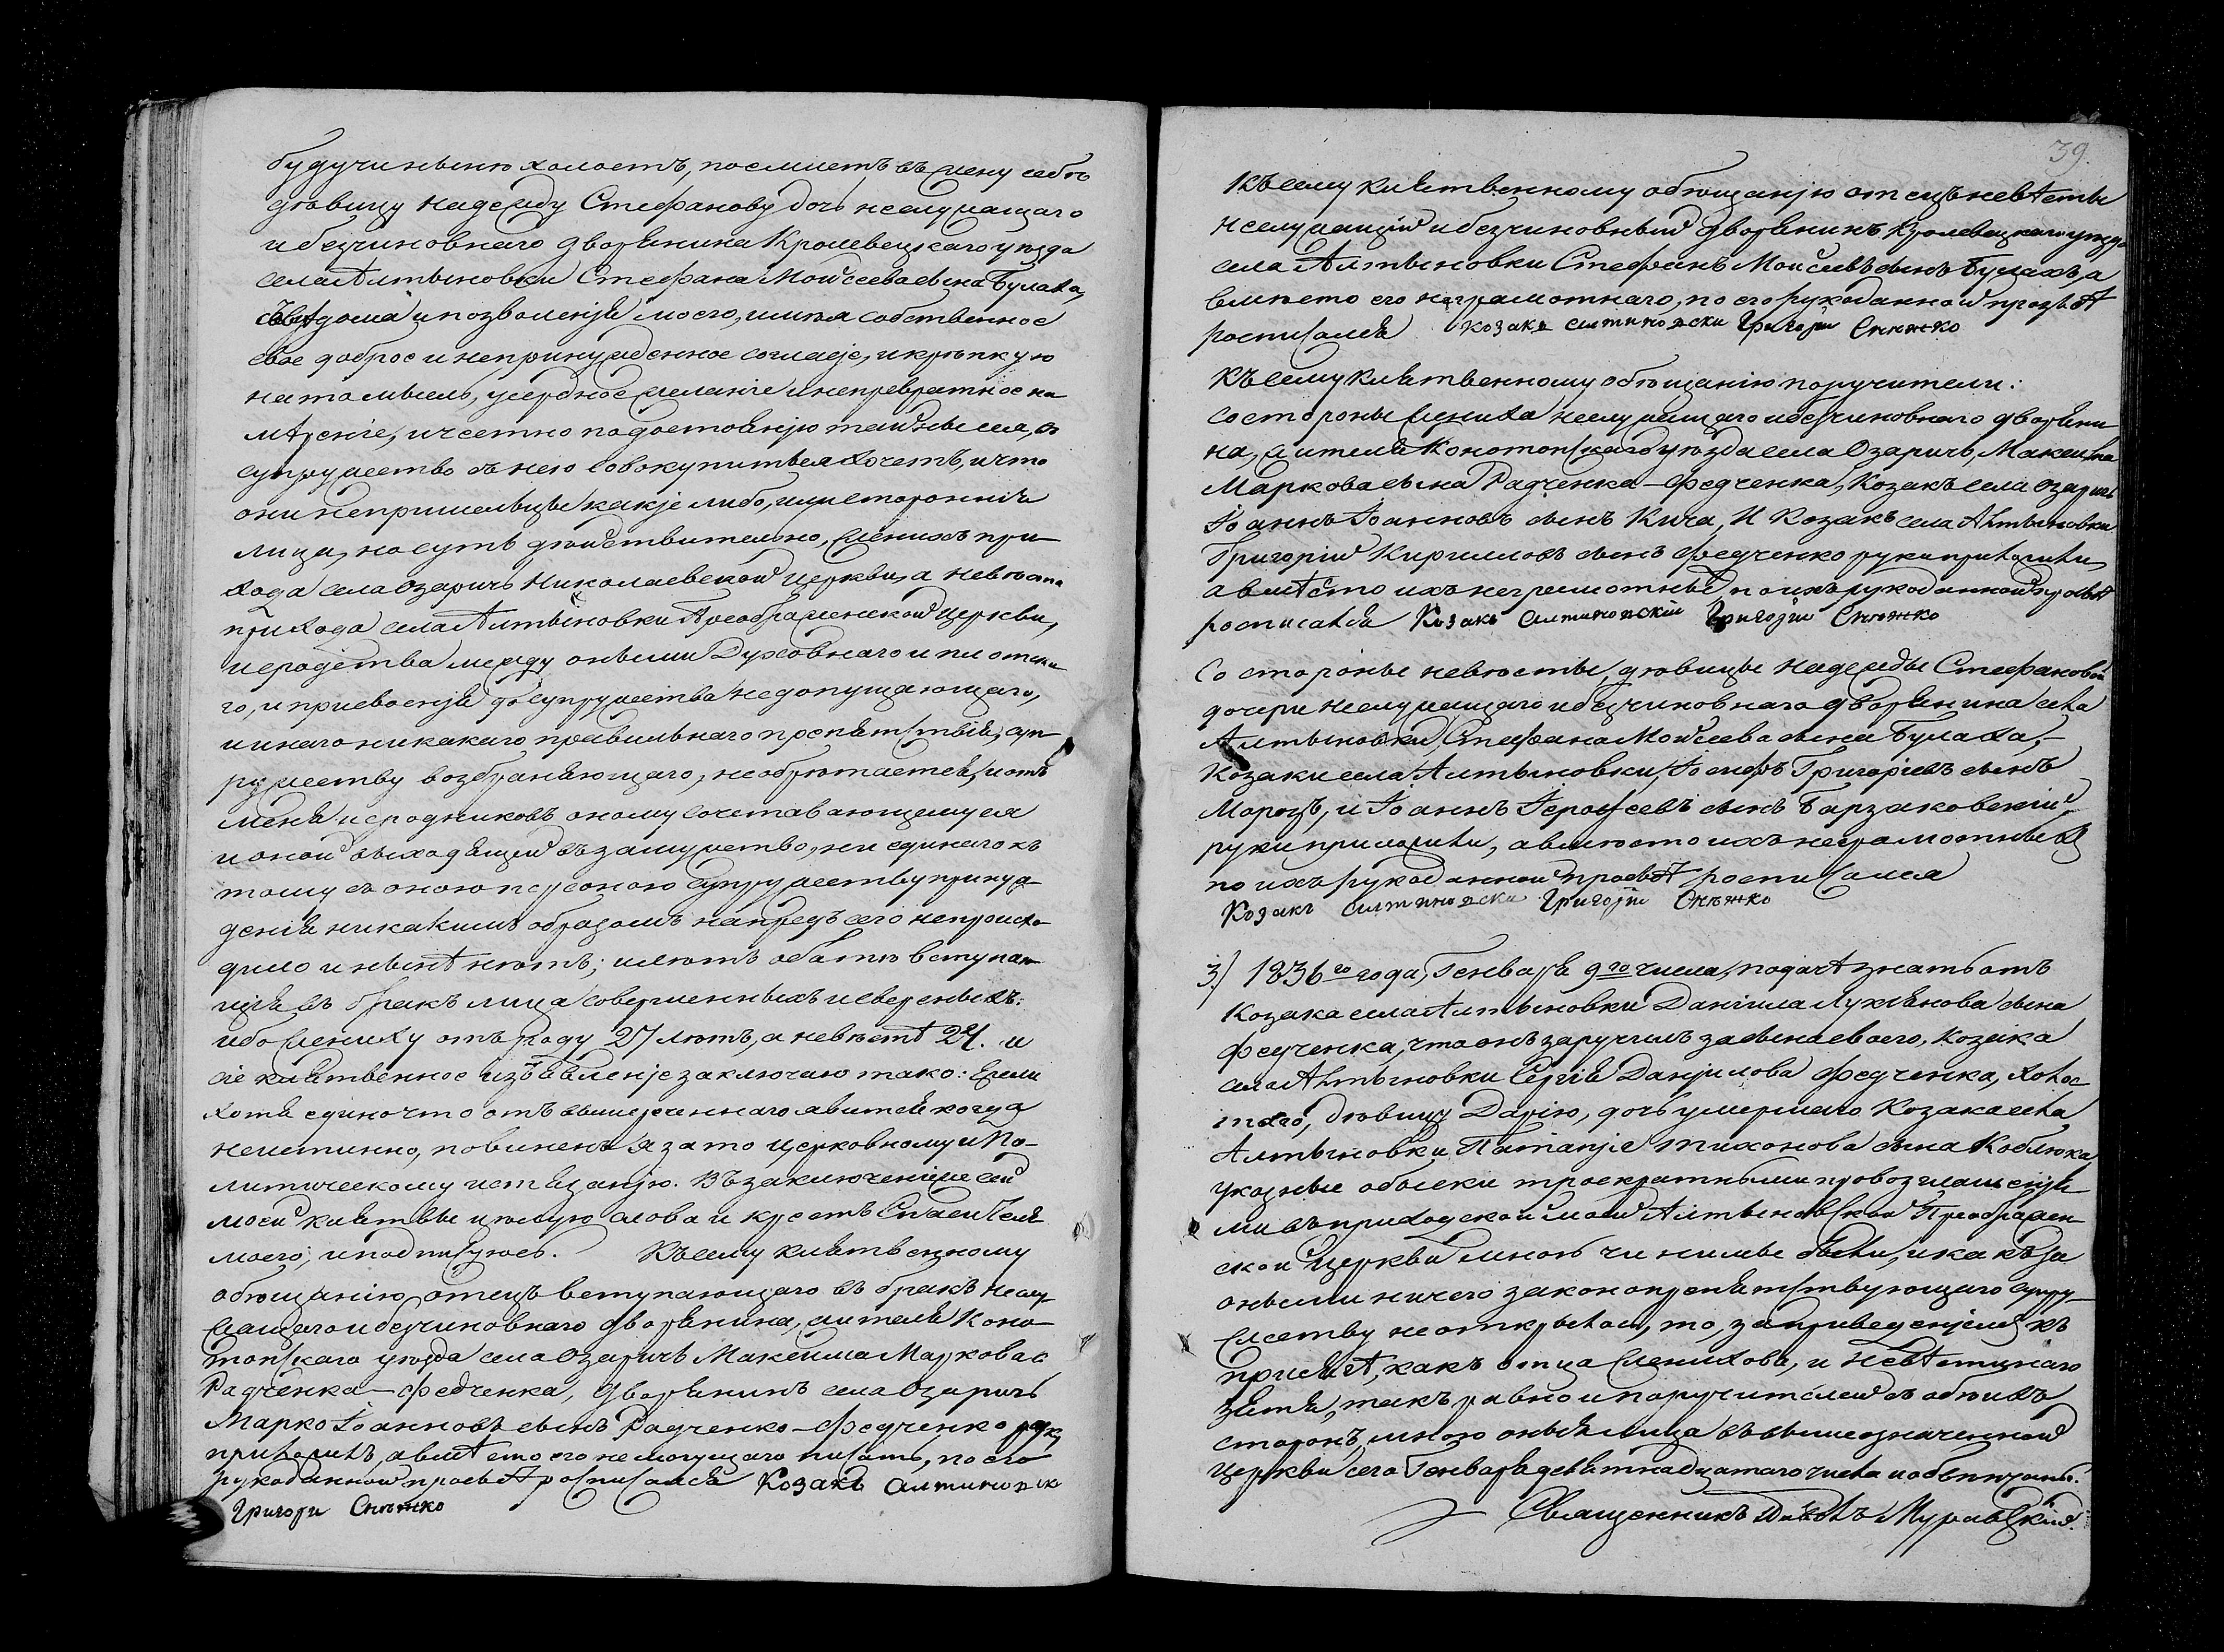 будучи нынѣ холостъ, поемлетъ въ жену себѣ
дѣвицу Надежду Стефанову дочь неслужащаго
и безчиновнаго дворянина Кролевецкаго уѣзда
села Алтыновки Стефана Мойсеева сына Булаха,
съ вѣдома и позволенія моего, имѣя собственное
свое доброе и непринужденное согласіе, и крѣпкую
на то мысль, усердное желаніе и непревратное на
мѣреніе, и честно по достоянію тайны сея, въ
супружество съ нею совокупиться хочетъ, и что
они не пришельцы какіе либо, или сторонніе
лица, но суть дѣйствительно, женихъ при-
хода села Озаричъ Николаевской церкви, а невѣста
прихода села Алтыновки Преображенской церкви,
и сродства между оными Духовнаго и плотска
го, и присвоенія до супружества недопущающаго,
и инаго никакаго правильнаго препятствія, суп-
ружеству возбраняющаго, не обрѣтается, и отъ
мене и сродниковъ оному сочетавающемуся
и оной выходящей въ замужество, ни единаго къ
тому съ оною персоною супружеству принуж-
денія никакимъ образомъ напредъ сего непроисхо-
дило и нынѣ нѣтъ; имѣютъ оба тіи вступаю-
щія въ бракъ лица совершенныхъ и сверсныхъ:
ибо жениху отъ роду 27 лѣтъ, а невѣстѣ 21. и
сіе клятвенное изъявленіе заключаю тако: Если
хотя едино что отъ вышереченнаго явится когда
неистинно, повиненъ я за то церковному и По-
литическому истязанію. Въ заключеніе же сей
моей клятвы цѣлую слова и крестъ Спасителя
моего, и подписуюсь. Къ сему клятвенному
обѣщанію отецъ вступающаго въ бракъ неслу-
жащаго и безчиновнаго дворянина, жителя Коно-
топскаго уѣзда села Озаричъ Максима Маркова с
Радченка–Федченка, Дворянинъ села Озаричъ
Марко Іоанновъ сынъ Радченко–Федченко руку
приложилъ, а вмѣсто его немогущаго писать, по его
рукоданной прозбѣ росписался Козакъ алтиновск
Григори Снѣжко
39.
Къ сему клятвенному обѣщанію отецъ невѣсты
неслужащій и безчиновный дворянинъ Кролевецкаго уѣзда
села Алтыновки Стефанъ Моисеевъ сынъ Булахъ, а
вмѣсто его неграмотнаго, по его рукоданной прозбѣ
росписался козакъ алтиновски Григори Снѣжко
Къ сему клятвенному обѣщанію поручители:
со стороны жениха неслужащаго и безчиновнаго дворяни
на, жителя Конотопскаго уѣзда села Озаричъ, Максима
Маркова сына Радченка–Федченка, Козакъ села Озаричъ
Іоаннъ Іоанновъ сынъ Кича, И Козакъ села Алтыновки
Григорій Кирилловъ сынъ Федченко руки приложили,
а вмѣсто ихъ неграмотныхъ по ихъ рукоданной прозбѣ
росписался Козакъ алтиновскии Григорiи Снѣжко
Со стороны невѣсты, дѣвицы Надежды Стефановой
дочери неслужащаго и безчиновнаго дворянина села
Алтыновки Стефана Мойсеева сына Булаха,–
Козаки села Алтыновки, Іосифъ Григорiевъ сынъ
Морозъ, и Іоаннъ Іерофеевъ сынъ Барзаковскій
руки приложили, а вмѣсто ихъ неграмотныхъ
по ихъ рукоданной прозбѣ росписался
Козакъ алтиновски Григорiи Снѣжко
3.) 1836го года, Генваря 9го числа, подачѣ знать отъ
Козака села Алтыновки Даніила Лукянова сына
Федченка, что онъ заручилъ за сына своего, Козака
села Алтыновки Сергія Даніилова Федченка, холос-
того, дѣвицу Дарію, дочь умершаго Козака села
Алтыновки Тихонова сына Коблюка,
указные обыски троекратными провозглашенія-
ми въ приходской моей Алтыновской Преображен-
ской Церкви мною чинимы были, и какъ за
оными ничего законопрепятствующаго супру-
жеству не открылось, то, за приведеніемъ къ
присягѣ, какъ отца женихова, и невѣстинаго
зятя, такъ равно и поручителей съ обѣихъ
сторонъ, мною оныя лица въ вышеозначенной
Церкви сего Генваря девятнадцатаго числа и обвѣнчаны.
Священникъ Муравскій.